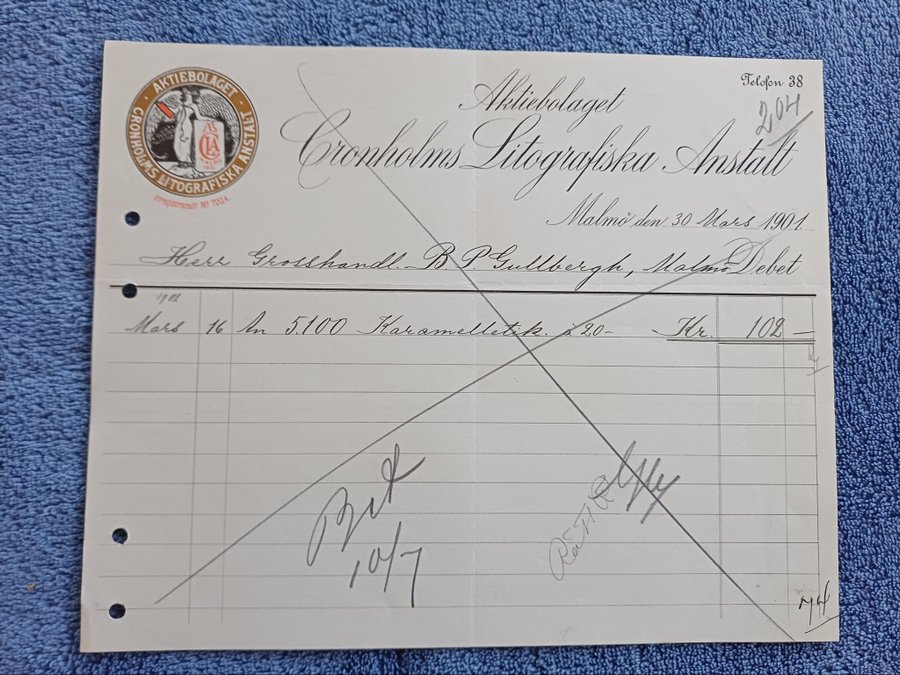 AKTIEBOLAGET CRONHOLMS LITOGRAFISKA ANSTALT
Telefon 38
204
Aktiebolaget
Cronholms Litografiska Anstalt
Malmö den 30 Mars 1901
Herr Grosshandl. B. P. Gullbergh, Malmö Debet
Mars 16 An 5.100 Karamelletik. à 20- Kr. 102 -
Bet
10/7
Rätt